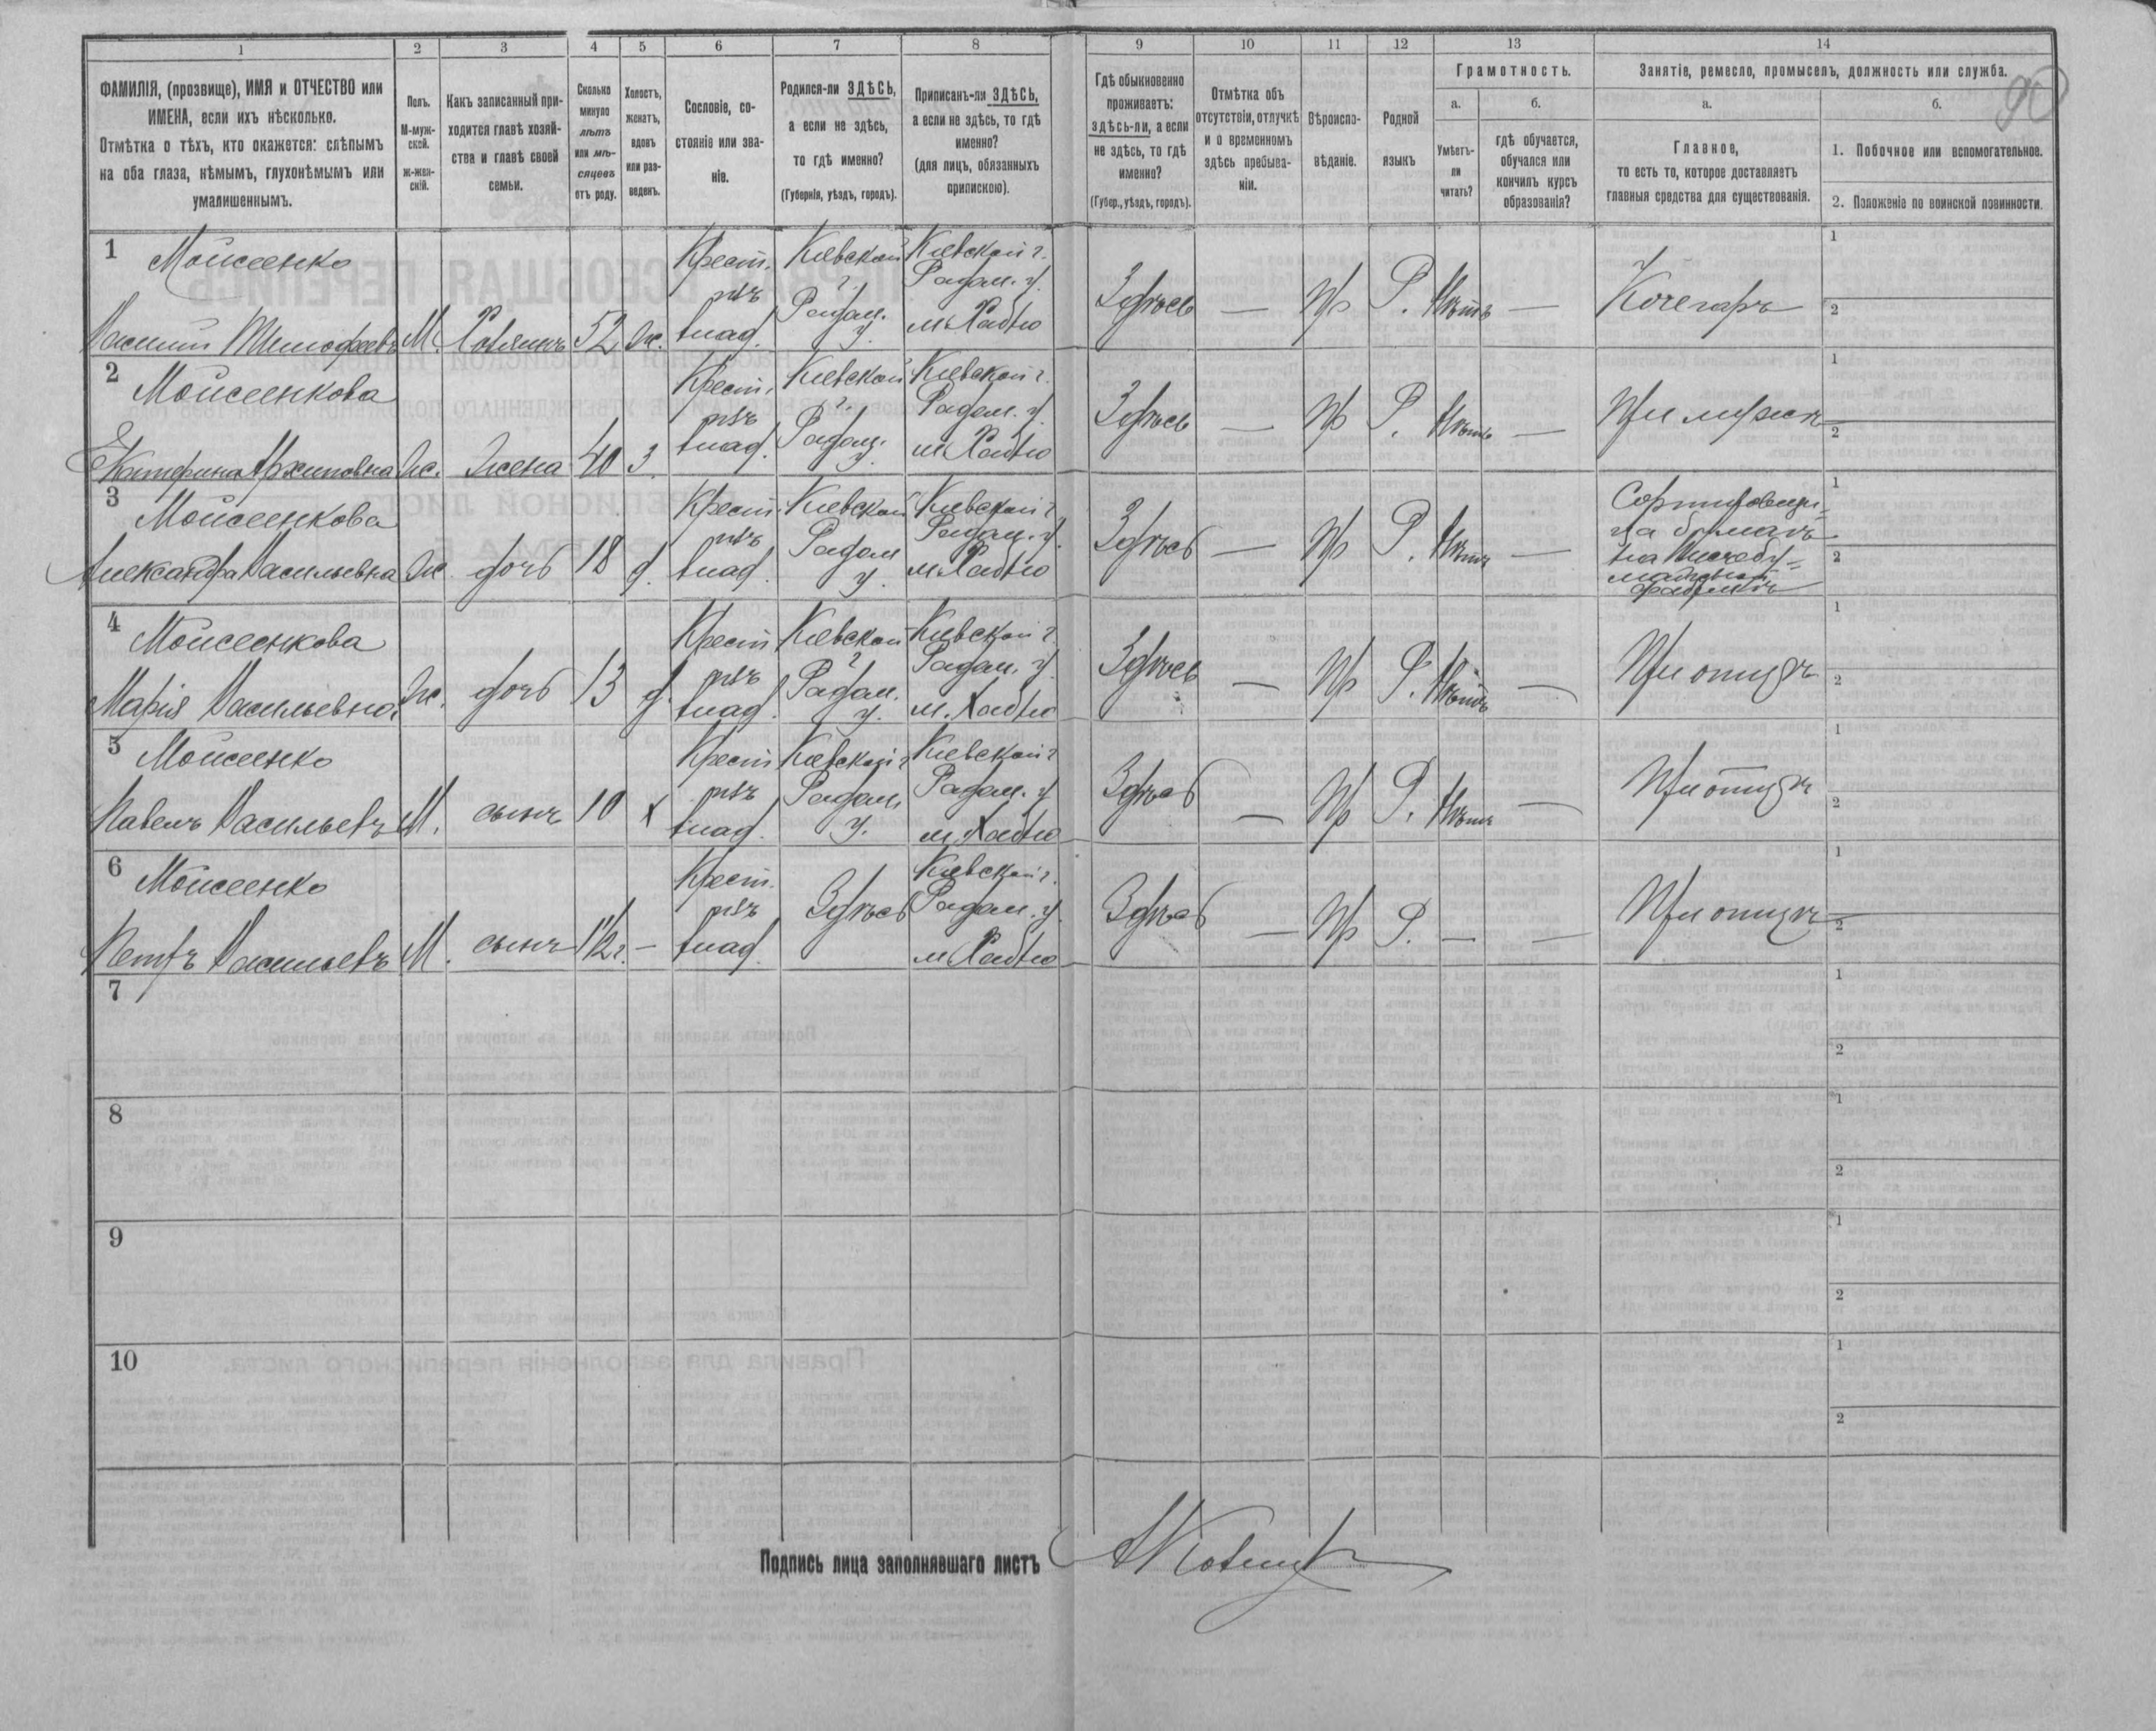 1 2 3 4 5 6 7 8 9 10 11 12 13 14
ФАМИЛІЯ, (прозвище), ИМЯ и ОТЧЕСТВО или
ИМЕНА, если ихъ нѣсколько.
Отмѣтка о тѣхъ, кто окажется: слѣпымъ
на оба глаза, нѣмымъ, глухонѣмымъ или
умалишеннымъ.
Полъ.
М-муж-
ской.
Ж-жен-
скій.
Какъ записанный при-
ходится главѣ хозяй-
ства и главѣ своей
семьи.
Сколько
минуло
лѣтъ
или мѣ-
сяцевъ
отъ роду.
Холостъ,
женатъ,
вдовъ
или раз-
веденъ.
Сословіе, со-
стояніе или зва-
ніе.
Родился-ли ЗДѢСЬ,
а если не здѣсь,
то гдѣ именно?
(Губернія, уѣздъ, городъ).
Приписанъ-ли ЗДѢСЬ,
а если не здѣсь, то гдѣ
именно?
(для лицъ, обязанныхъ
припискою).
Гдѣ обыкновенно
проживаетъ:
здѣсь-ли, а если
не здѣсь, то гдѣ
именно?
(Губер., уѣздъ, городъ).
Отмѣтка объ
отсутствіи, отлучкѣ
и о временномъ
здѣсь пребыва-
ніи.
Вѣроиспо-
вѣданіе.
Родной
языкъ
Грамотность.
а.
Умѣетъ-
ли
читать?
б.
гдѣ обучается,
обучался или
кончилъ курсъ
образованія?
Занятіе, ремесло, промыселъ, должность или служба.
90
а.
Главное,
то есть то, которое доставляетъ
главныя средства для существованія.
б.
1. Побочное или вспомогательное.
2. Положеніе по воинской повинности.
1 Моисеенко
Василий Тимофеевъ М. Хозяинъ 52 ж.
Крест. Кіевской г. Кіевской г.
Радом. у. Радом. у.
м. Хабно
Здѣсь — Пр Р. Нѣтъ — Кочегаръ
1
2
2 Моисеенкова
Екатерина Архиповна Ж. Жена 40 З.
Крест. Кіевской г. Кіевской г.
Радом. у. Радом. у.
м. Хабно
Здѣсь — Пр Р. Нѣтъ — При мужѣ
1
2
3 Моисеенкова
Александра Васильевна Ж. дочь 18 д.
Крест. Кіевской Кіевской г.
Радом. у. Радом. у.
м. Хабно
Здѣсь — Пр Р. Нѣтъ —
на
фабрикѣ
1
2
4 Моисеенкова
Марія Васильевна Ж. дочь 13 д.
Крест. Кіевской г. Кіевской г.
Радом. у. Радом. у.
м. Хабно
Здѣсь — Пр Р. Нѣтъ — При отцѣ
1
2
5 Моисеенко
Павелъ Васильевъ М. сынъ 10 х
Крест. Кіевской г. Кіевской г.
Радом. у. Радом. у.
м. Хабно
Здѣсь — Пр Р. Нѣтъ — При отцѣ
1
2
6 Моисеенко
Петръ Васильевъ М. сынъ 1 1/2 г. —
Крест. Здѣсь Кіевской г.
Радом. у.
м. Хабно
Здѣсь — Пр Р. — — При отцѣ
1
2
7
1
2
8
1
2
9
1
2
10
1
2
Подпись лица заполнявшаго листъ